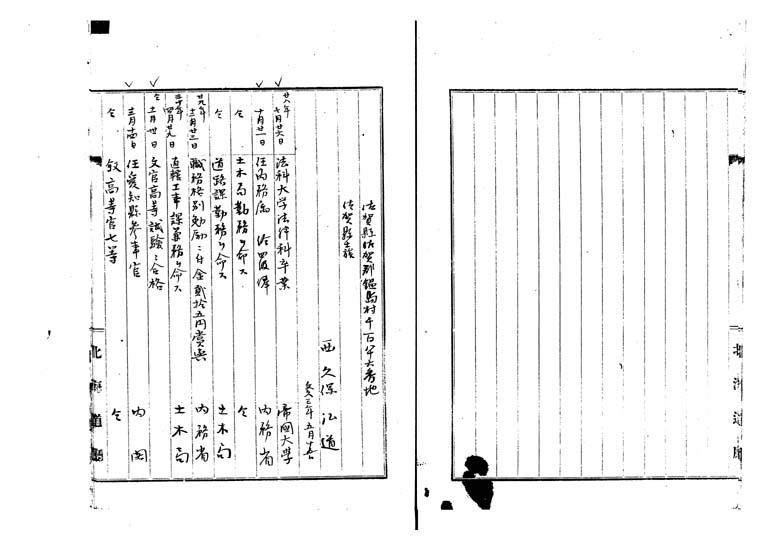 佐賀縣佐賀郡鍋島村千百
佐賀縣士族
西久保弘道
文久三年五月廿五日
廿八年七月廿六日 法科大学法律科卒業 帝國大学
十月廿一日 任内務属 給四級俸 内務省
仝 土木局勤務ヲ命ス 仝
仝 道路課勤務ヲ命ス 土木局
廿九年十二月廿三日 職務格別勉励ニ付金貳拾五円賞與 内務省
三十年四月廿九日 直轄工事課兼務ヲ命ス 土木局
仝十二月廿日 文官高等試験ニ合格
三月十四日 任愛知縣参事官 内閣
仝 叙高等官七等 仝
北海道廳
北海道廳